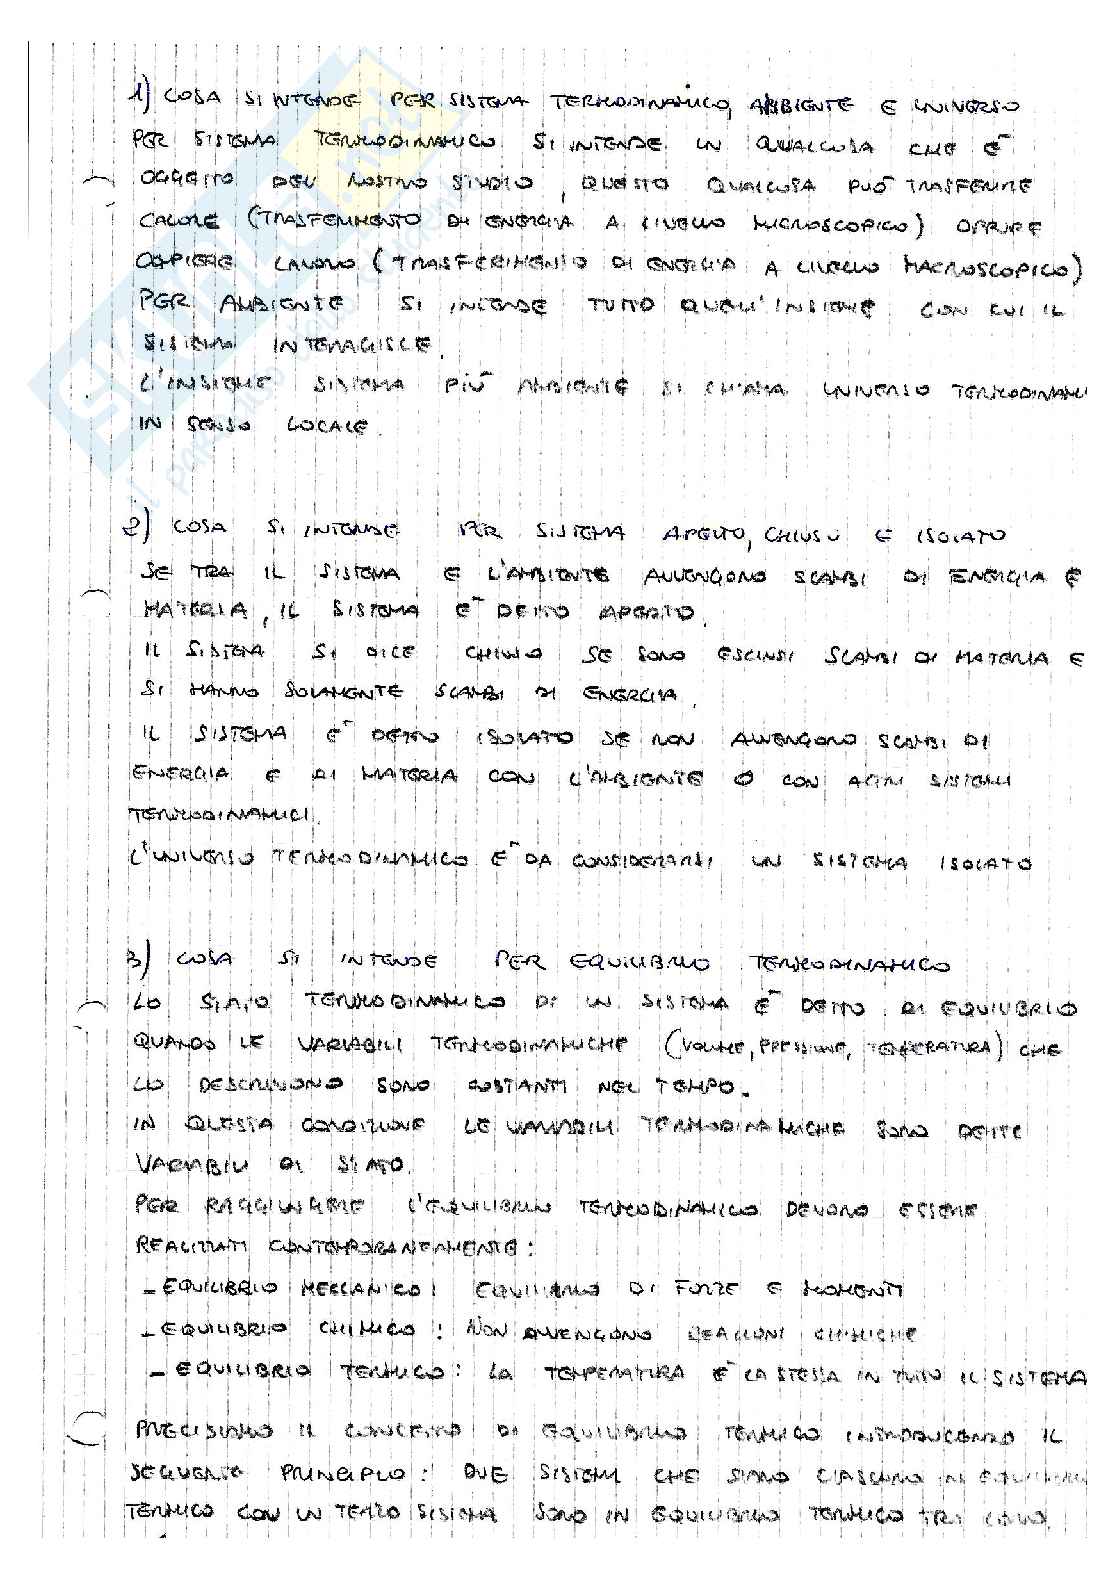 1) COSA SI INTENDE PER SISTEMA TERMODINAMICO, AMBIENTE E UNIVERSO
PER SISTEMA TERMODINAMICO SI INTENDE UN QUALCOSA CHE È
OGGETTO DEL NOSTRO STUDIO, QUESTO QUALCOSA PUÒ TRASFERIRE
CALORE (TRASFERIMENTO DI ENERGIA A LIVELLO MICROSCOPICO) OPPURE
COMPIERE LAVORO (TRASFERIMENTO DI ENERGIA A LIVELLO MACROSCOPICO)
PER AMBIENTE SI INTENDE TUTTO QUELL'INSIEME CON CUI IL
SISTEMA INTERAGISCE.
L'INSIEME SISTEMA PIÙ AMBIENTE SI CHIAMA UNIVERSO TERMODINAMI
IN SENSO LOCALE.
2) COSA SI INTENDE PER SISTEMA APERTO, CHIUSO E ISOLATO
SE TRA IL SISTEMA E L'AMBIENTE AVVENGONO SCAMBI DI ENERGIA E
MATERIA, IL SISTEMA È DETTO APERTO.
IL SISTEMA SI DICE CHIUSO SE SONO ESCLUSI SCAMBI DI MATERIA E
SI HANNO SOLAMENTE SCAMBI DI ENERGIA.
IL SISTEMA È DETTO ISOLATO SE NON AVVENGONO SCAMBI DI
ENERGIA E DI MATERIA CON L'AMBIENTE O CON ALTRI SISTEMI
TERMODINAMICI.
L'UNIVERSO TERMODINAMICO È DA CONSIDERARSI UN SISTEMA ISOLATO
3) COSA SI INTENDE PER EQUILIBRIO TERMODINAMICO
LO STATO TERMODINAMICO DI UN SISTEMA È DETTO DI EQUILIBRIO
QUANDO LE VARIABILI TERMODINAMICHE (VOLUME, PRESSIONE, TEMPERATURA) CHE
LO DESCRIVONO SONO COSTANTI NEL TEMPO.
IN QUESTA CONDIZIONE LE VARIABILI TERMODINAMICHE SONO DETTE
VARIABILI DI STATO.
PER RAGGIUNGERE L'EQUILIBRIO TERMODINAMICO DEVONO ESSERE
REALIZZATI CONTEMPORANEAMENTE:
- EQUILIBRIO MECCANICO: EQUILIBRIO DI FORZE E MOMENTI
- EQUILIBRIO CHIMICO: NON AVVENGONO REAZIONI CHIMICHE
- EQUILIBRIO TERMICO: LA TEMPERATURA È LA STESSA IN TUTTO IL SISTEMA
PRECISIAMO IL CONCETTO DI EQUILIBRIO TERMICO INTRODUCENDO IL
SEGUENTE PRINCIPIO: DUE SISTEMI CHE SIANO CIASCUNO IN EQUILIBRIO
TERMICO CON UN TERZO SISTEMA SONO IN EQUILIBRIO TERMICO TRA LORO.